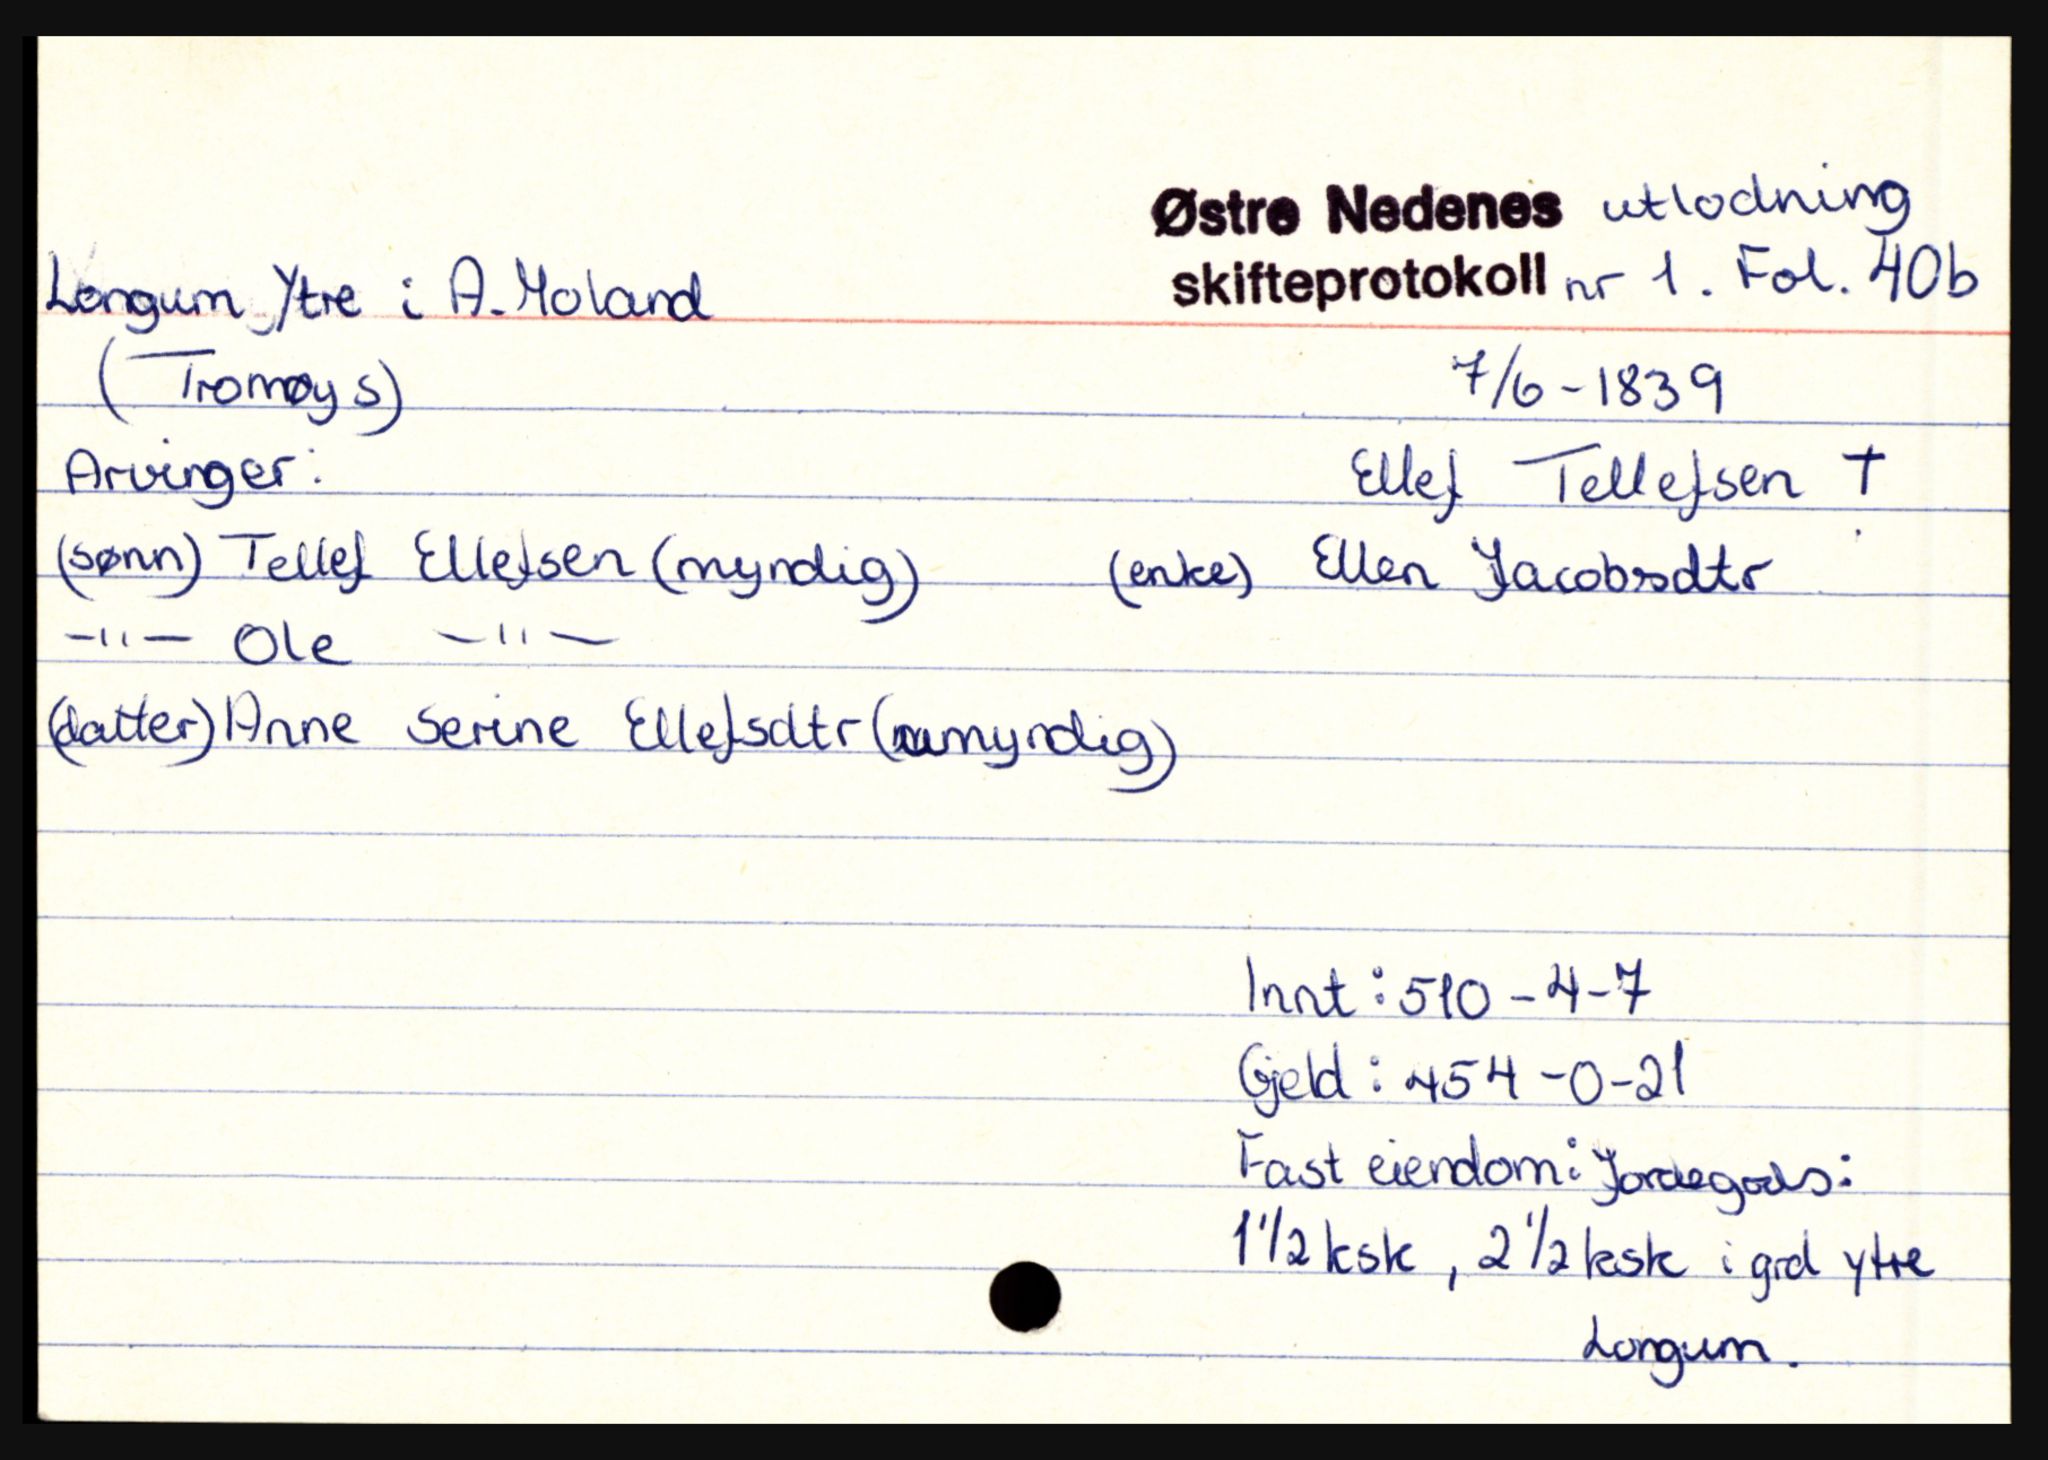 Østre Nedenes utlodning
skifteprotokoll nr 1. Fol. 40b
Longum Ytre i A. Moland
(Tromøy s)
7/6-1839
Arvinger:
Ellef Tellefsen †
(sønn) Tellef Ellefsen (myndig)
(enke) Ellen Jacobsdtr
-"- Ole -"-
(datter) Anne Serine Ellefsdtr (umyndig)
Innt: 510-4-7
Gjeld: 454-0-21
Fast eiendom: Jordegods:
1 1/2 ksk, 2 1/2 ksk i grd ytre
Longum.